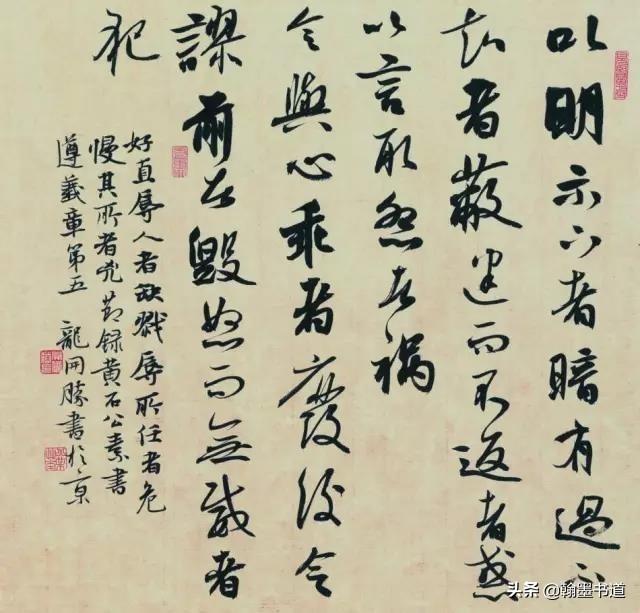 以明示下者暗有過不
知者蔽迷而不返者惑
以言取怨者禍
令與心乖者廢後令
謬前者毀怒而無威者
犯
好直辱人者殃戮辱所任者危
慢其所者兇節錄黄石公素書
遵義章第五 龍開勝書於京
头条 @翰墨书道